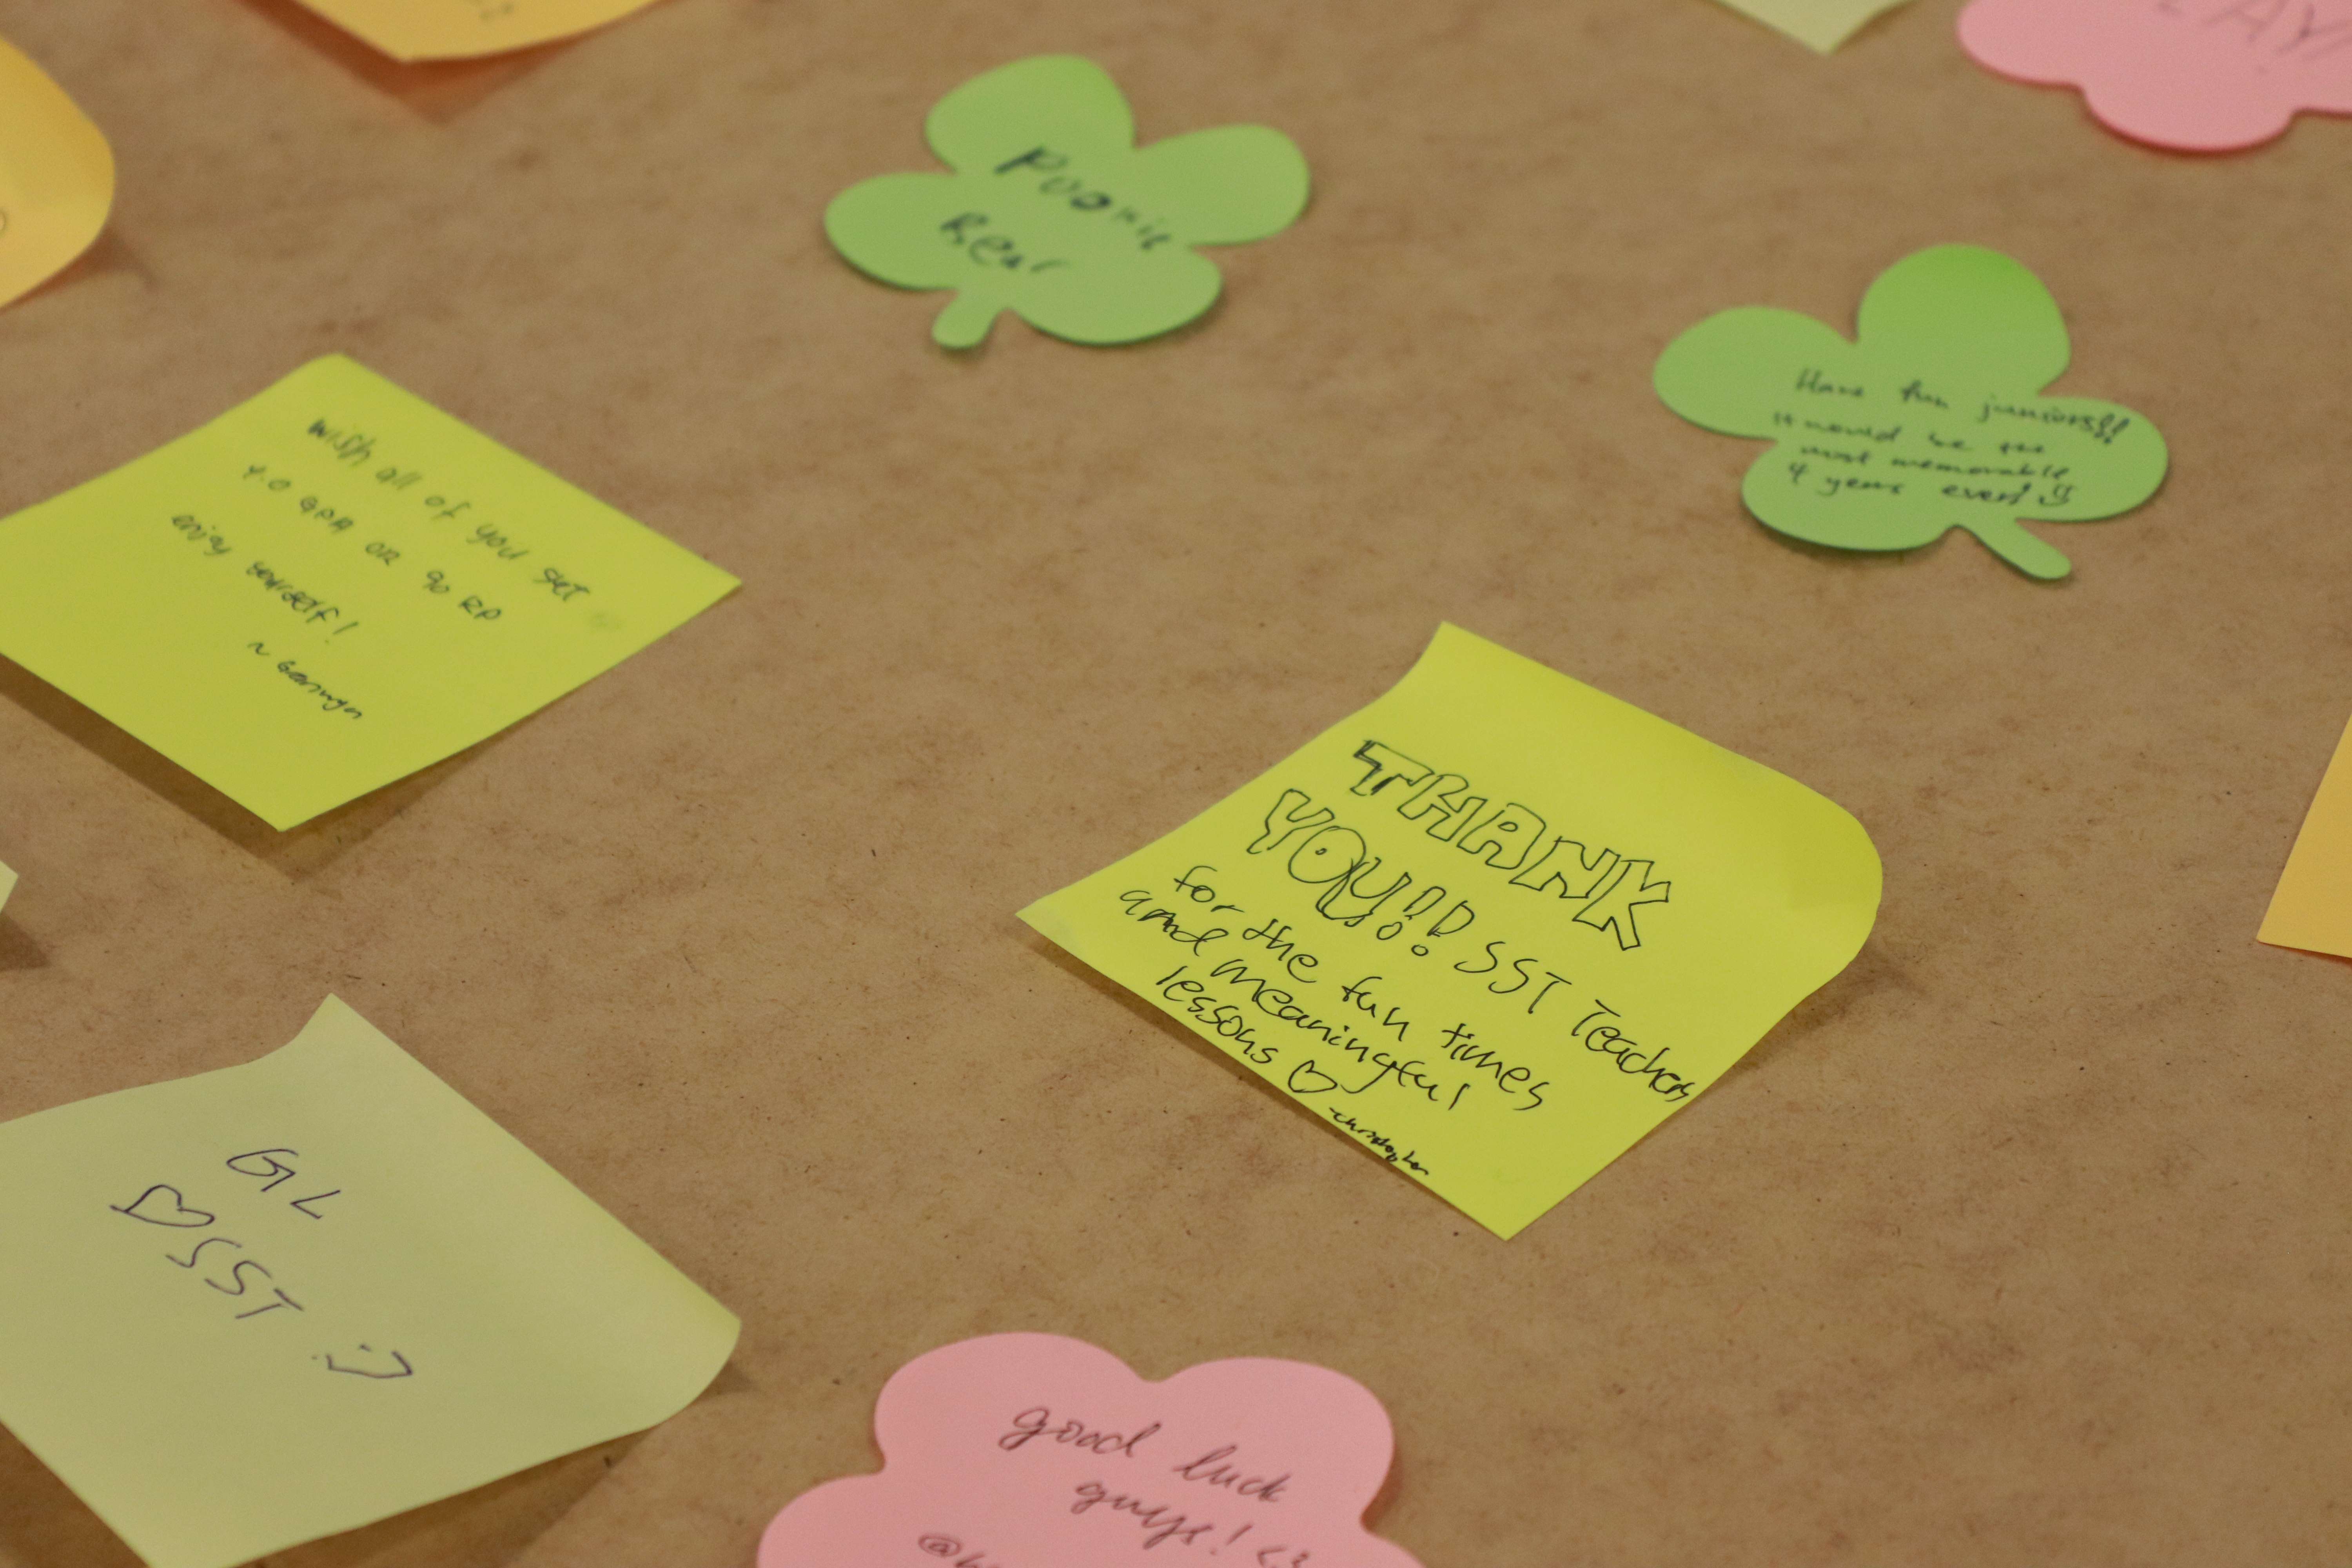 Pookie
Bear
Have fun juniors!!
It would be the
most memorable
4 years ever! :)
Wish all of you get
4.0 GPA OR 90 RP
enjoy yourself!
THANK
YOU!!! SST Teachers
for the fun times
and meaningful
lessons ♡
-Christopher
GL
♡SST :)
good luck
guys! <3